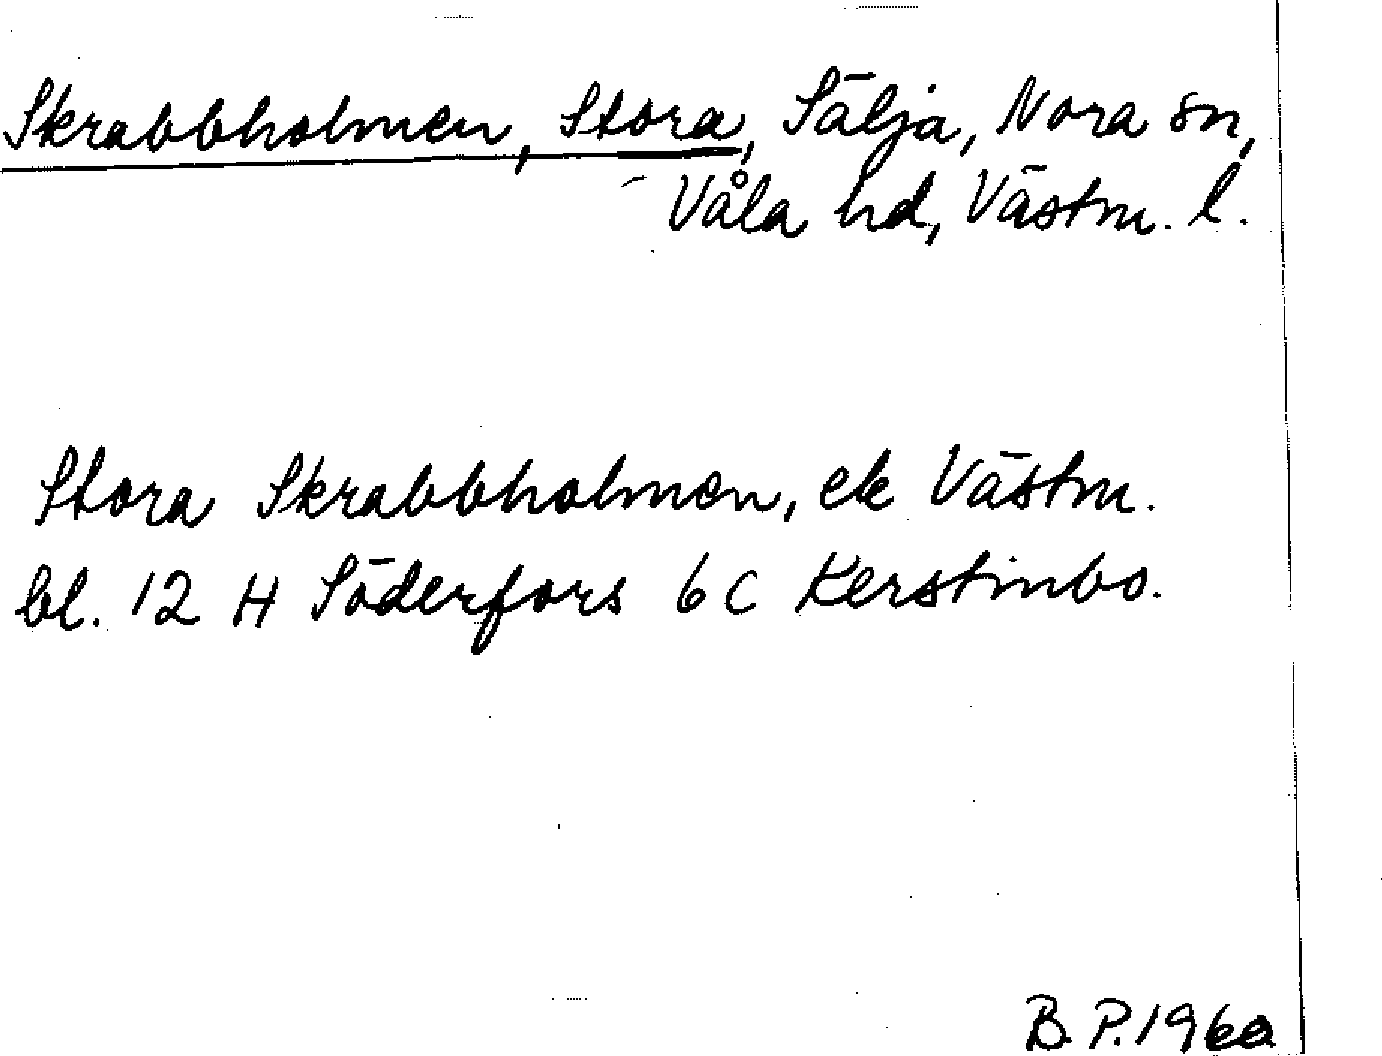 Skrabbholmen, Stora, Sälja, Nora sn,
Våla hd, Västm. l.
Stora Skrabbholmen, ek Västm.
bl. 12 H Söderfors 6 C Kerstinbo.
B. P. 1960